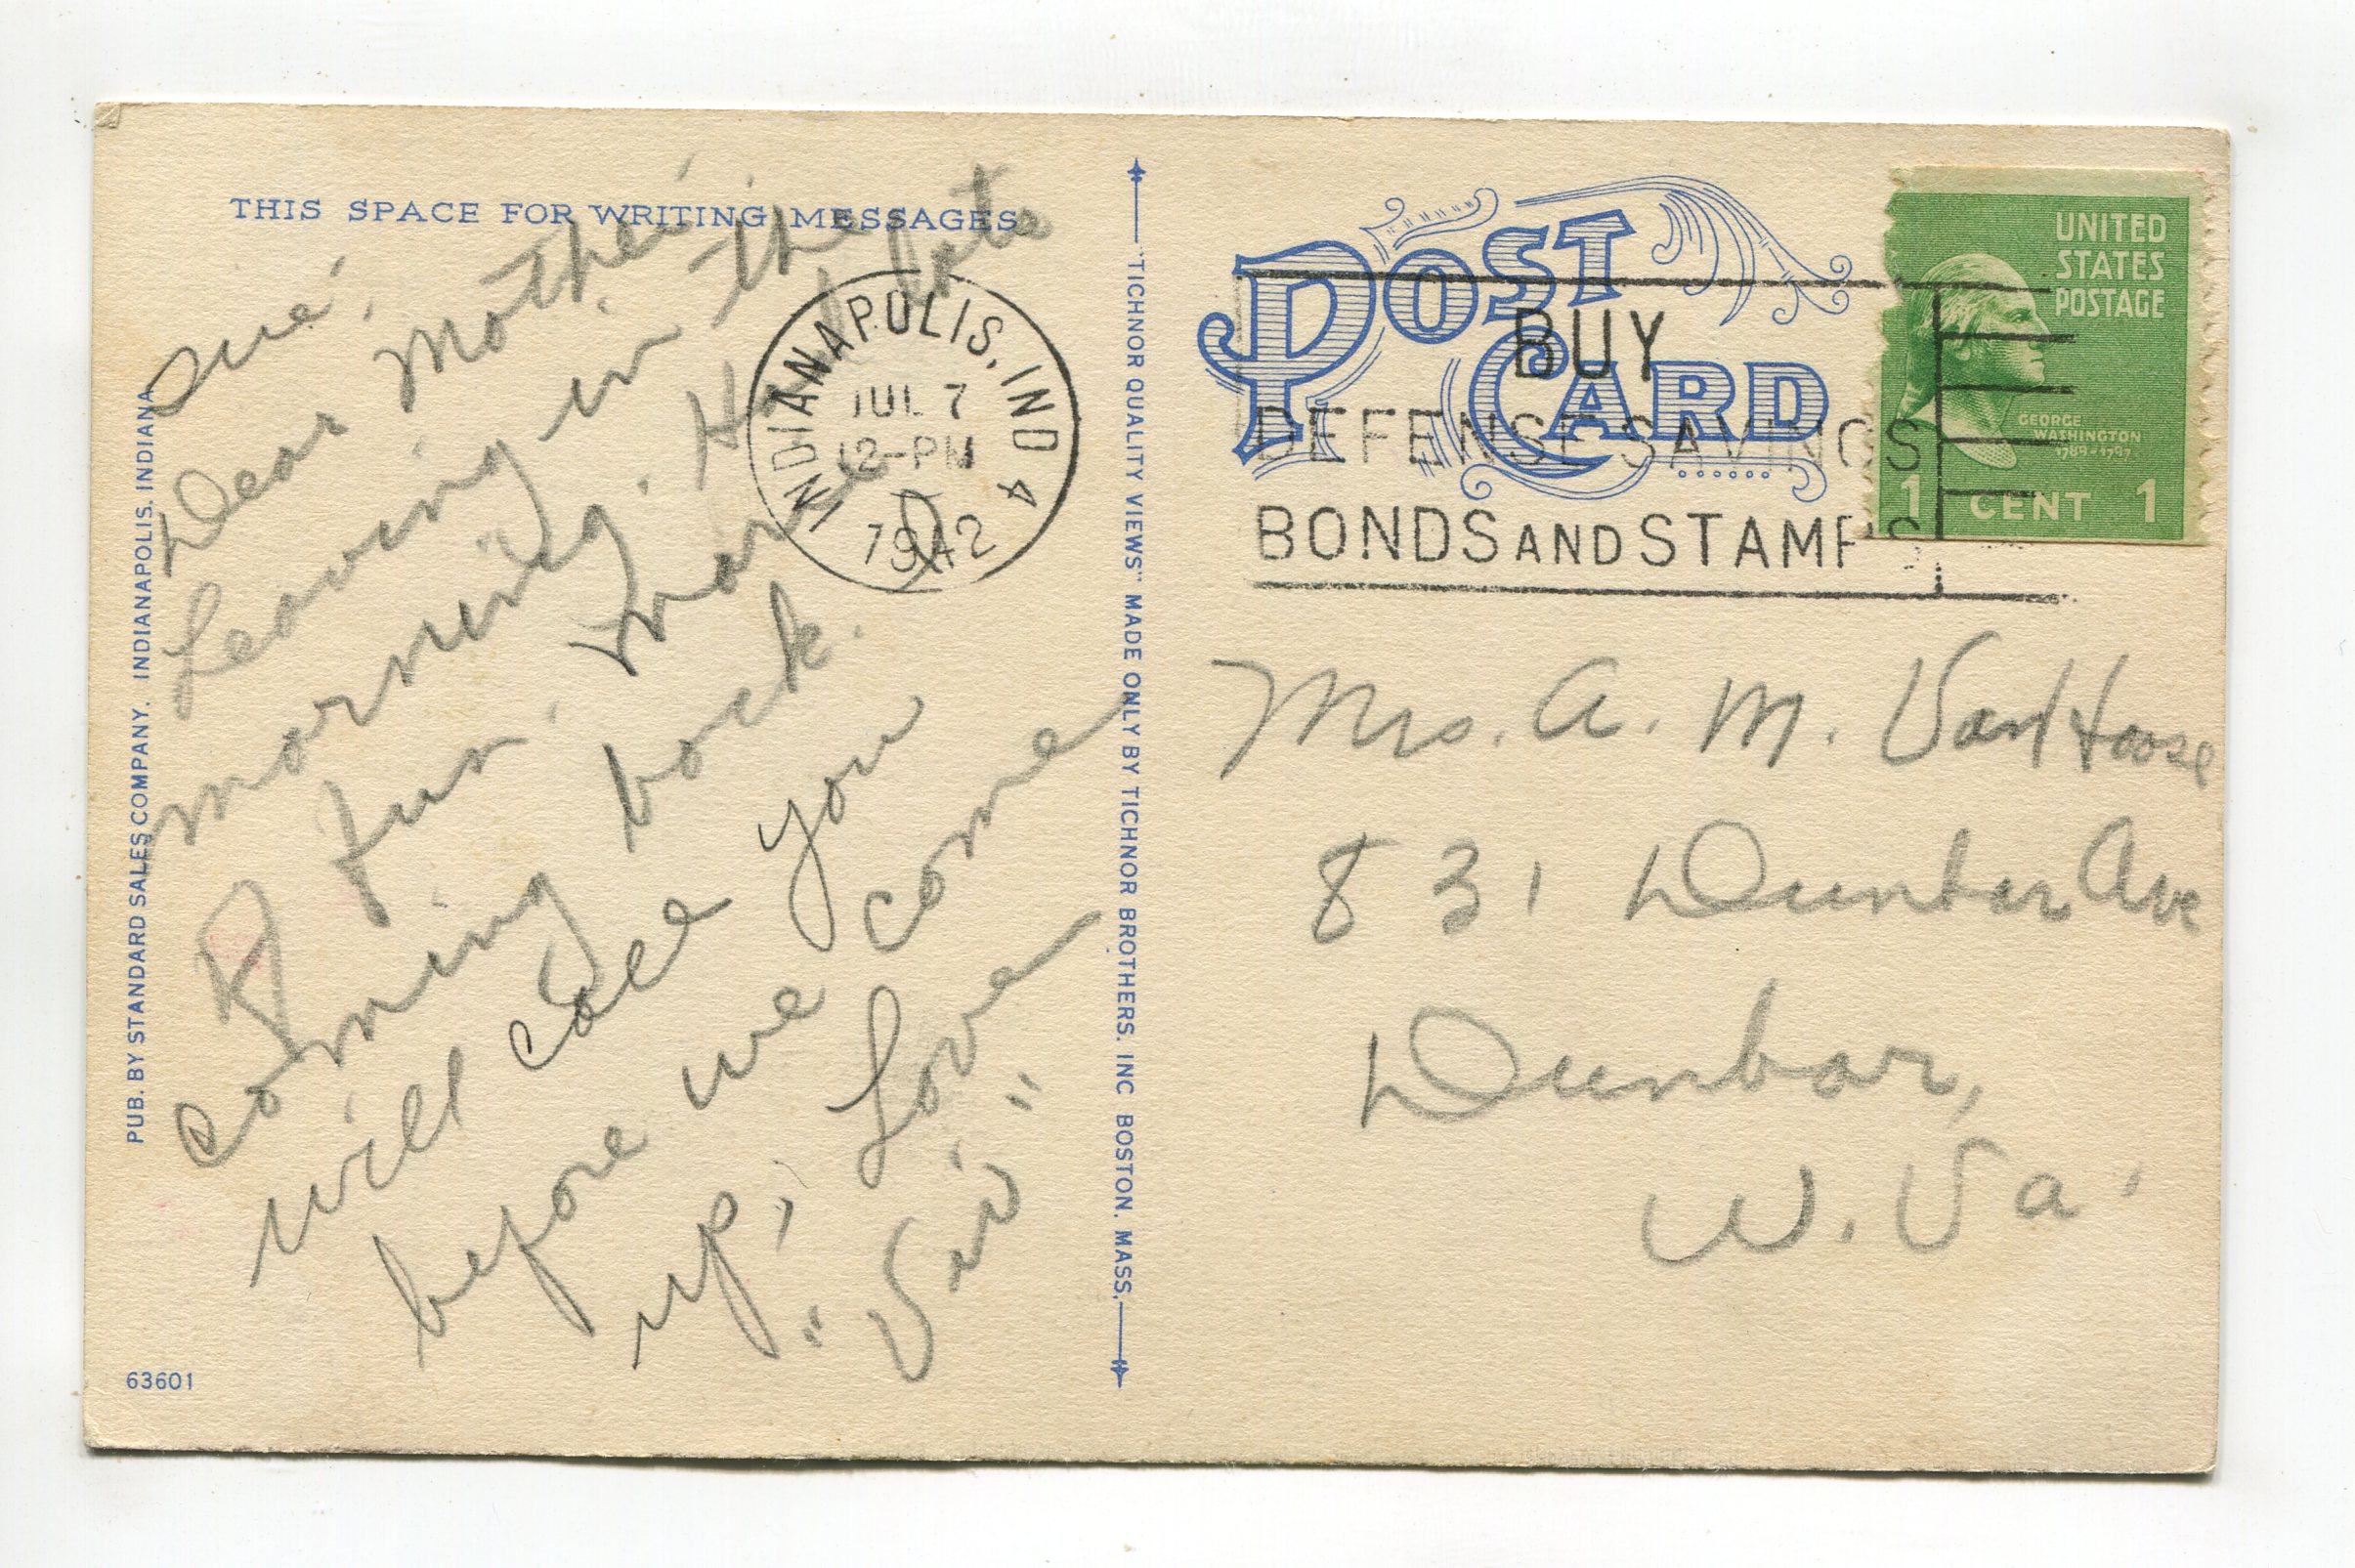 THIS SPACE FOR WRITING MESSAGES
Dear Mother:
Leaving in the
morning. Had lots
of fun.
coming back.
will call you
before we come
up. Love
INDIANAPOLIS, IND 4
JUL 7
12-PM
1942
PUB. BY STANDARD SALES COMPANY. INDIANAPOLIS. INDIANA.
63601
"TICHNOR QUALITY VIEWS" MADE ONLY BY TICHNOR BROTHERS. INC BOSTON. MASS.
POST CARD
BUY
DEFENSE SAVINGS
BONDS AND STAMPS
UNITED
STATES
POSTAGE
GEORGE
WASHINGTON
1789-1797
1 CENT 1
Mrs. A. M. VanHoose
831 Dunbar Ave
Dunbar,
W. Va.